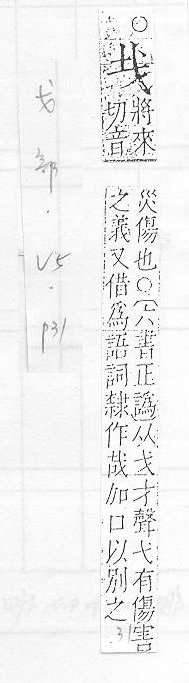 ○𢦏將來
切音
災傷也○〔六書正譌〕从戈才聲弋有傷害
之義又借爲語詞隸作哉加口以别之
31
戈部.V5.P31